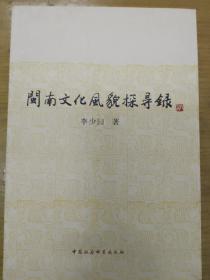 閩南文化風貌探尋録
李少园 著
中国社会科学出版社